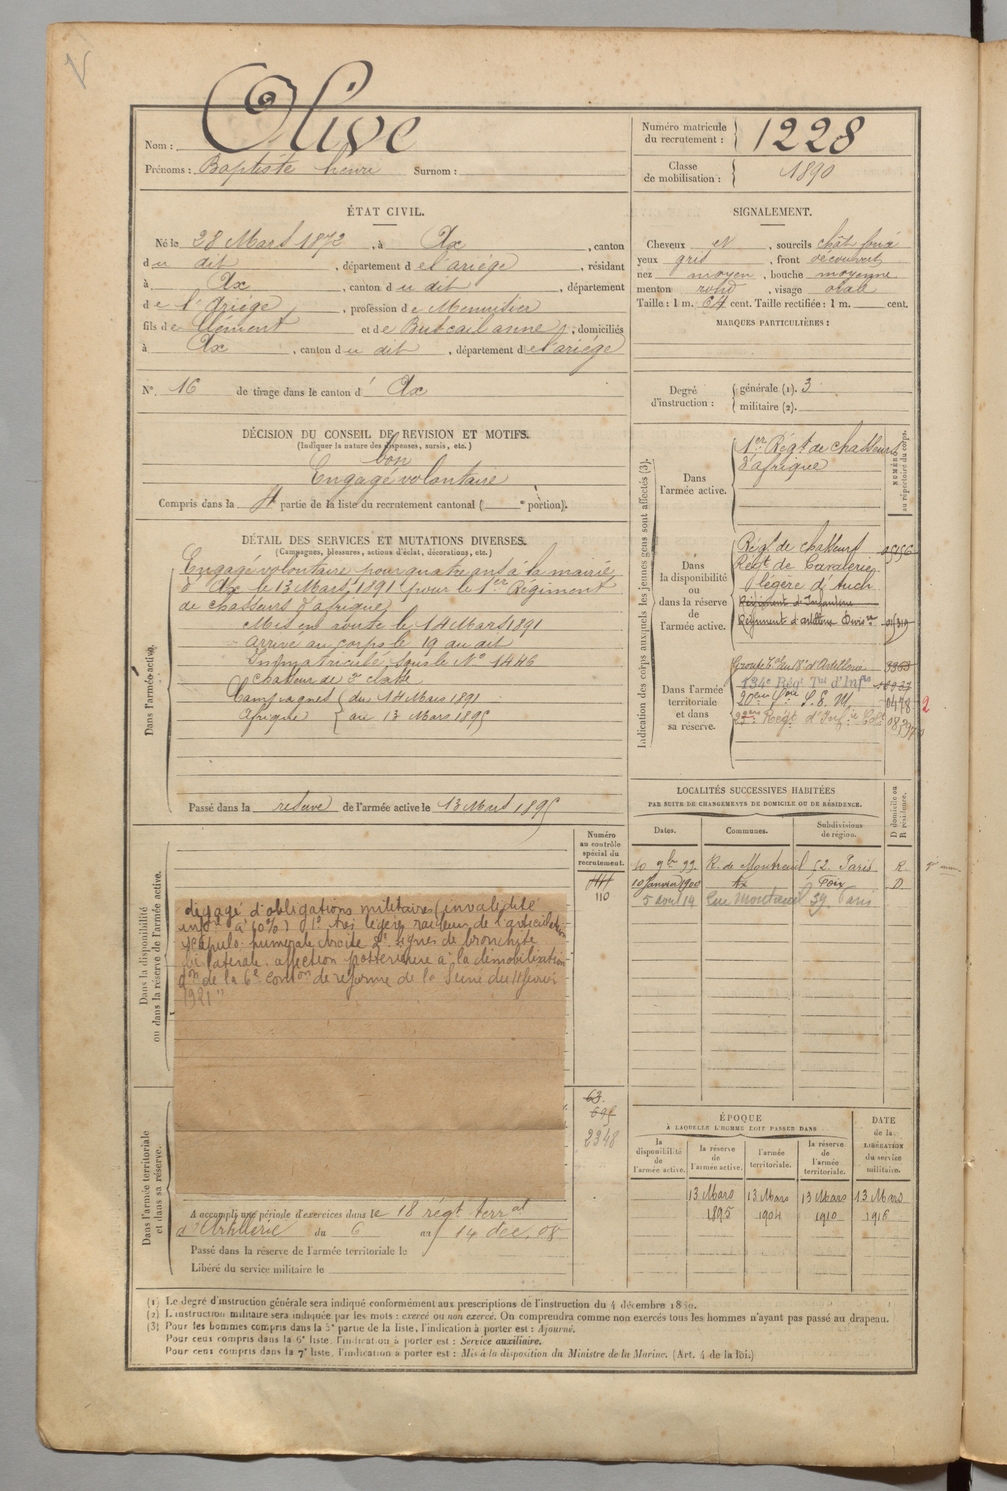 Olive
Nom :
Prénoms : Baptiste henri Surnom :
Numéro matricule du recrutement : 1228
Classe de mobilisation : 1890
ÉTAT CIVIL.
Né le 28 Mars 1872, à Ax, canton
du dit, département de l'ariège, résidant
à Ax, canton du dit, département
de l'Ariège, profession de Menuisier
fils de Clément et de Buscail anne ; domiciliés
à Ax, canton du dit, département de l'ariège
N° 16 de tirage dans le canton d' Ax
SIGNALEMENT.
Cheveux N, sourcils chât foncé
yeux gris, front découvert
nez moyen, bouche moyenne
menton rond, visage ovale
Taille : 1 m. 64 cent. Taille rectifiée : 1 m. cent.
MARQUES PARTICULIÈRES :
Degré d'instruction : générale (1). 3
militaire (2).
DÉCISION DU CONSEIL DE REVISION ET MOTIFS.
(Indiquer la nature des dispenses, sursis, etc.)
bon
Engagé volontaire
Compris dans la 4e partie de la liste du recrutement cantonal ( e portion).
DÉTAIL DES SERVICES ET MUTATIONS DIVERSES.
(Campagnes, blessures, actions d'éclat, décorations, etc.)
Dans l'armée active.
Engagé volontaire pour quatre ans à la mairie
d'Ax le 13 Mars 1891 pour le 1er Régiment
de chasseurs d'afrique
Mis en route le 14 Mars 1891
Arrivé au corps le 19 au dit
Immatriculé sous le N° 1446
Chasseur de 2e classe
Campagnes du 14 Mars 1891
Afrique au 13 Mars 1895
Passé dans la réserve de l'armée active le 13 Mars 1895
Indication des corps auxquels les jeunes gens sont affectés (3).
NUMÉRO au répertoire du corps.
Dans l'armée active.
1er Régt de chasseurs
d'afrique
Dans la disponibilité ou dans la réserve de l'armée active.
Régt de chasseurs
Régt de Cavalerie
légère d'Auch
Régiment d'Infanterie
Régiment d'artillerie
Dans l'armée territoriale et dans sa réserve.
134e Régt Tal d'Infie
20me S.E.M.
22me Régt d'Infie Cole
LOCALITÉS SUCCESSIVES HABITÉES
PAR SUITE DE CHANGEMENTS DE DOMICILE OU DE RÉSIDENCE.
D domicile ou R résidence.
Dates. Communes. Subdivisions de région.
R. de Montreuil 52 Paris R
10 Janvier 1900 Ax Foix D
5 avril 14 Rue Montreuil 39 Paris
Dans la disponibilité ou dans la réserve de l'armée active.
Numéro au contrôle spécial du recrutement.
110
dégagé d'obligations militaires (invalidité
infre à 10%) 1° très légère raideur de l'articulation
scapulo humérale droite 2° signes de bronchite
bilatérale, affection postérieure à la démobilisation
don de la 6e comon de réforme de la Seine du 11 février
1921"
63
695
2348
Dans l'armée territoriale et dans sa réserve.
A accompli une période d'exercices dans le 18 régt terral
d'Artillerie du 6 au 14 déc. 08
Passé dans la réserve de l'armée territoriale le
Libéré du service militaire le
ÉPOQUE
À LAQUELLE L'HOMME DOIT PASSER DANS
la disponibilité de l'armée active. la réserve de l'armée active. l'armée territoriale. la réserve de l'armée territoriale. DATE de la LIBÉRATION du service militaire.
13 Mars 13 Mars 13 Mars 13 Mars
1895 1904 1910 1916
(1) Le degré d'instruction générale sera indiqué conformément aux prescriptions de l'instruction du 4 décembre 1889.
(2) L'instruction militaire sera indiquée par les mots : exercé ou non exercé. On comprendra comme non exercés tous les hommes n'ayant pas passé au drapeau.
(3) Pour les hommes compris dans la 5e partie de la liste, l'indication à porter est : Ajourné.
Pour ceux compris dans la 6e liste, l'indication à porter est : Service auxiliaire.
Pour ceux compris dans la 7e liste, l'indication à porter est : Mis à la disposition du Ministre de la Marine. (Art. 4 de la loi.)